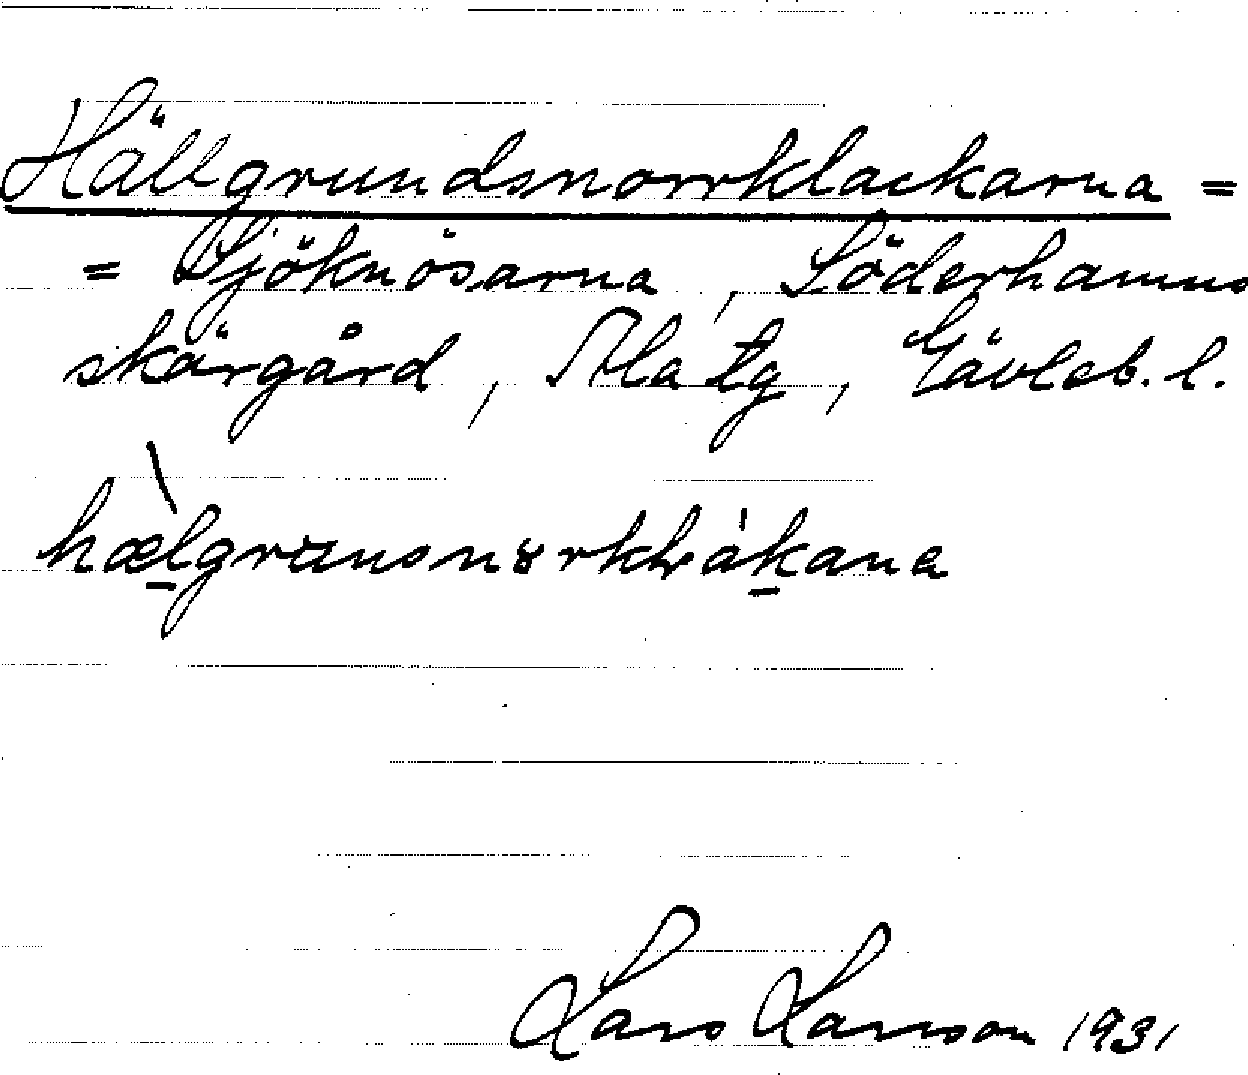 Hällgrundsnorrklackarna =
= Sjöknösarna, Söderhamns
skärgård, Ala tg, Gävleb. l.
hælgrunsnorklakana
Lars Larsson 1931